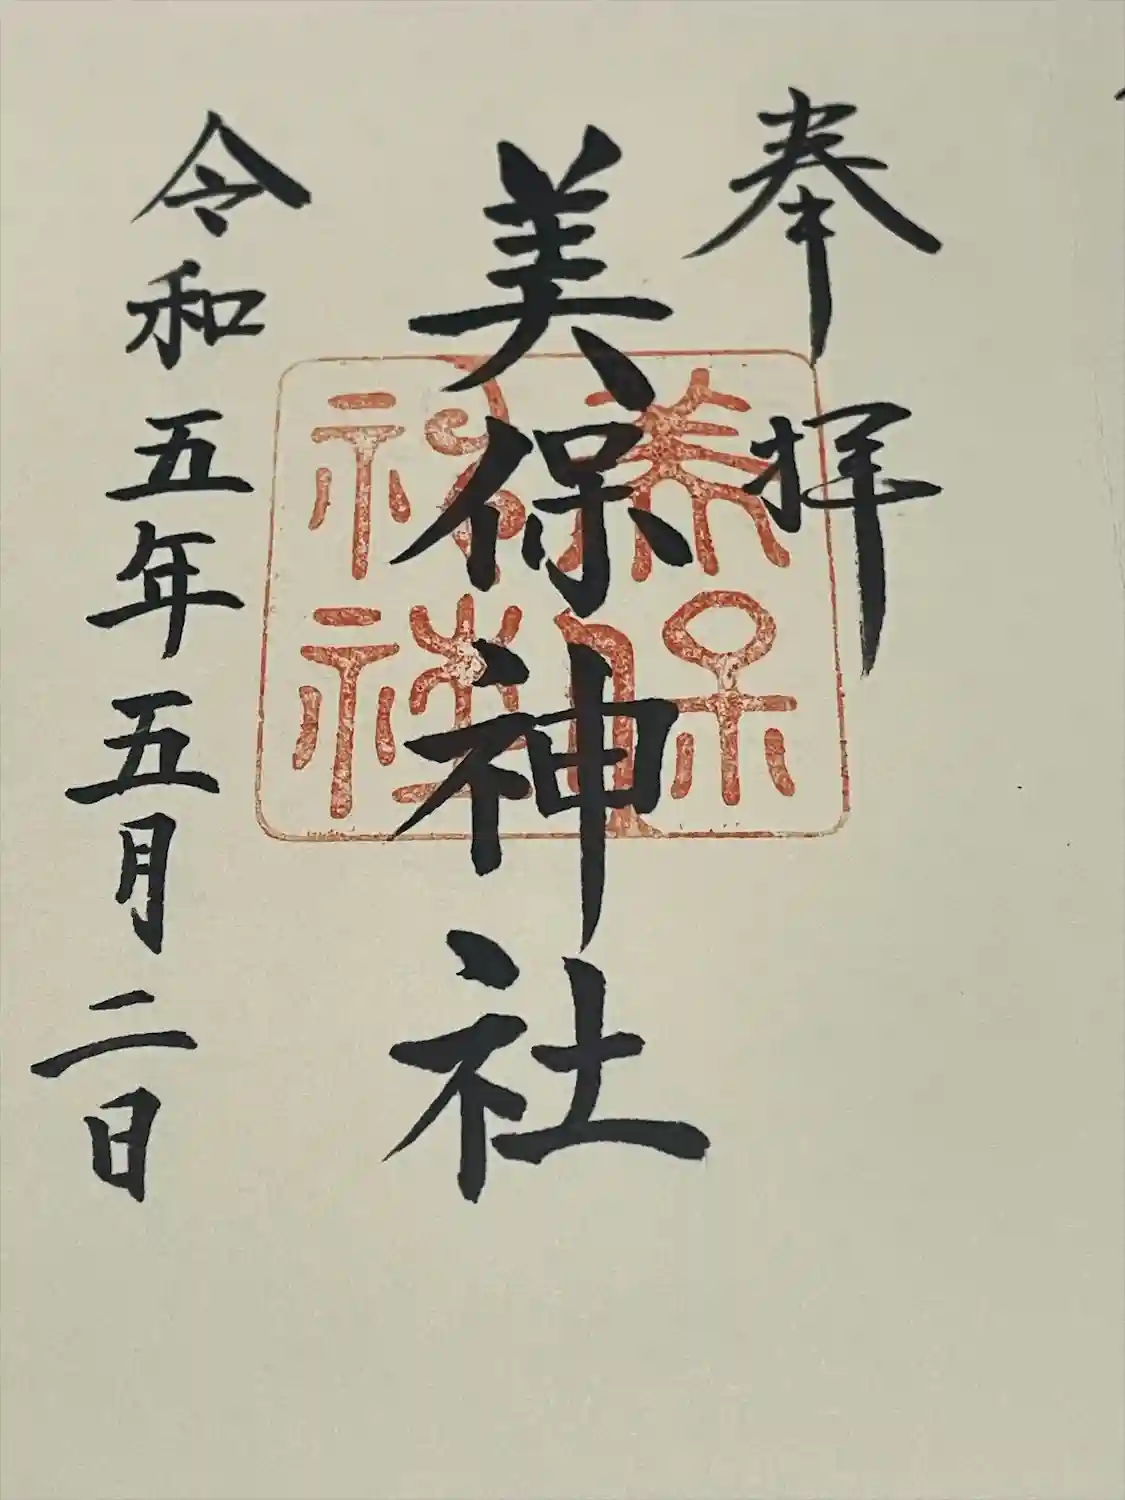 奉拝
美保神社
美保神社
令和五年五月二日